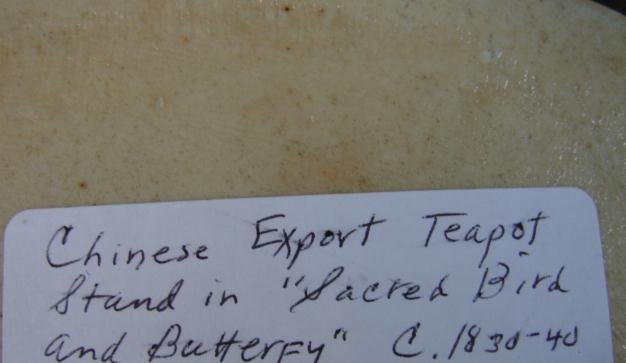 Chinese Export Teapot
Stand in "Sacred Bird
and Butterfy" C. 1830-40